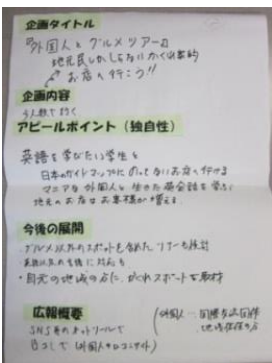 企画タイトル
外国人とグルメツアーの
地元民しかしらないかくれ家的
お店へ行こう!!
企画内容
少人数で行く
アピールポイント（独自性）
英語を学びたい学生と
日本のガイドマップにのってないお店へ行ける
マニアな外国人と生きた英会話を学ぶ
地元のお店はお客様が増える
今後の展開
・グルメ以外のスポットも含めたツアーも検討
英語以外の言語に対応も
・自元の地域の方に、かくれスポットを取材
広報概要
SNS等のネットツールで
口コミで（外国人の口コミサイト）
外国人…国際交流団体
地域在住の方